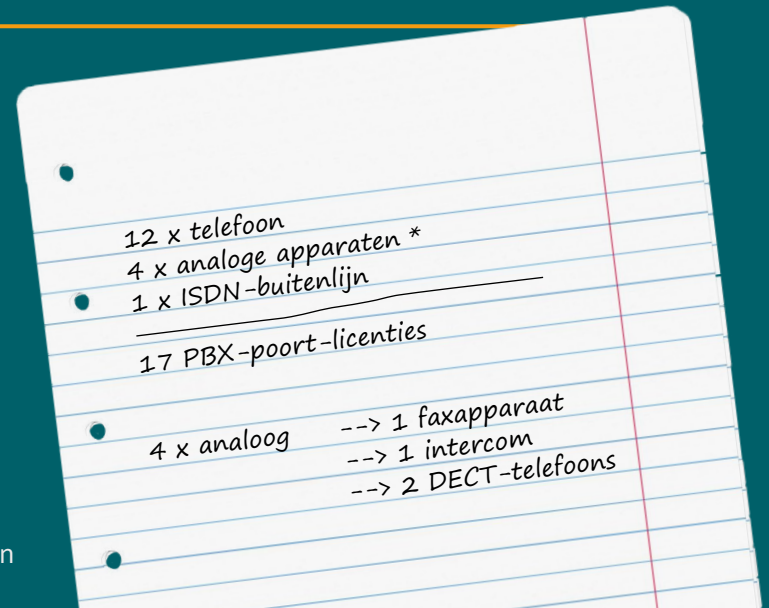 12 x telefoon
4 x analoge apparaten *
1 x ISDN-buitenlijn
17 PBX-poort-licenties
4 x analoog --> 1 faxapparaat
--> 1 intercom
--> 2 DECT-telefoons
n